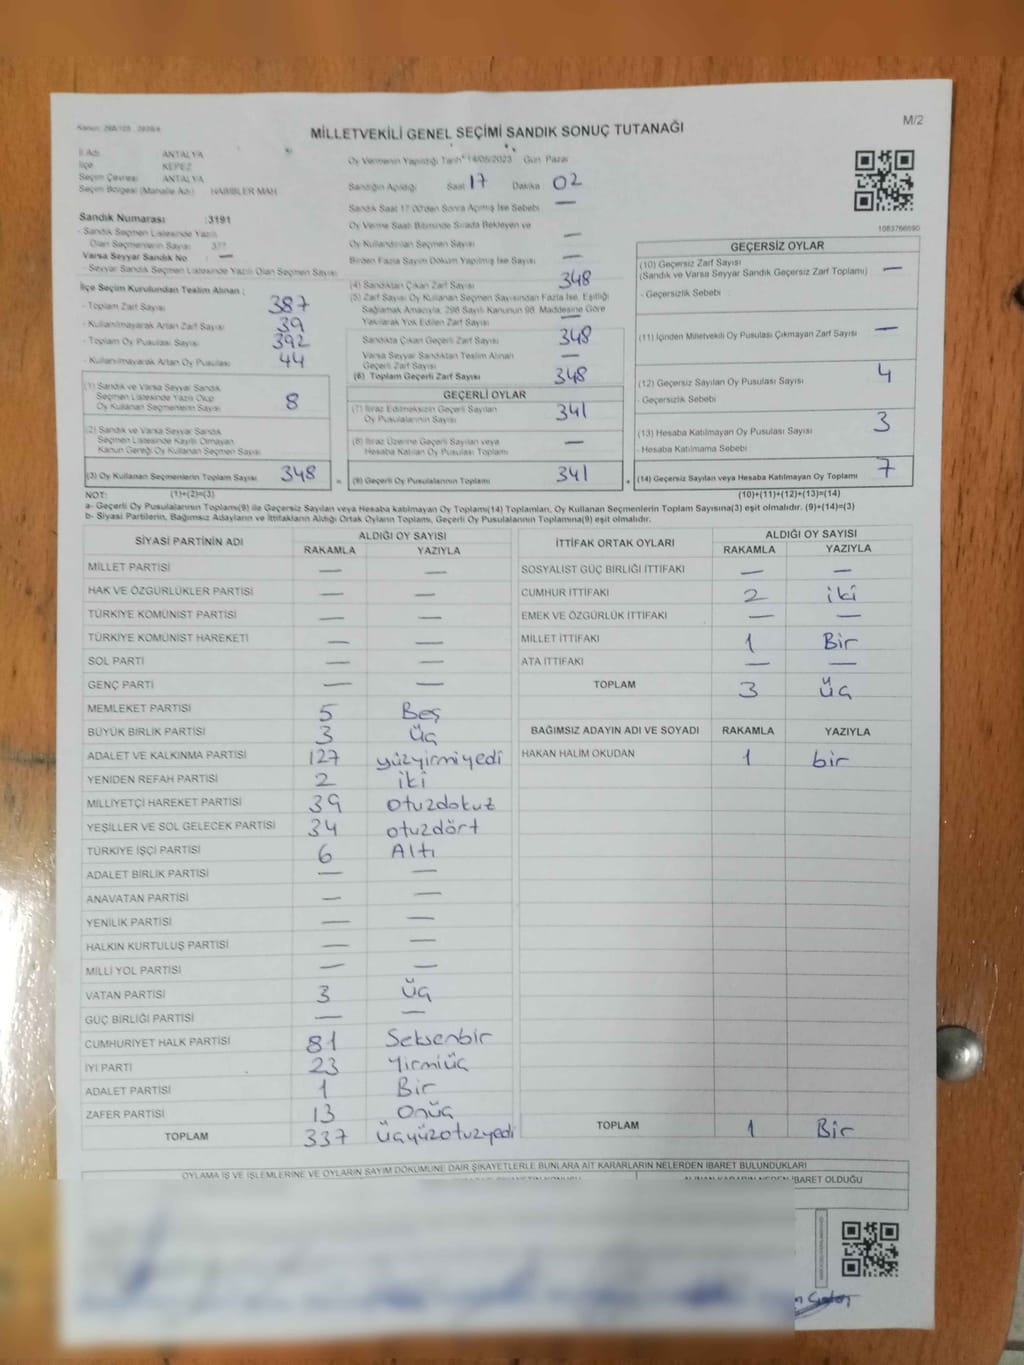 M/2
MİLLETVEKİLİ GENEL SEÇİMİ SANDIK SONUÇ TUTANAĞI
İl Adı : ANTALYA
İlçe : KEPEZ
Seçim Çevresi : ANTALYA
Seçim Bölgesi (Mahalle Adı) : HABİBLER MAH
Sandık Numarası : 3191
- Sandık Seçmen Listesinde Yazılı
Olan Seçmenlerin Sayısı
Varsa Seyyar Sandık No : —
- Seyyar Sandık Seçmen Listesinde Yazılı Olan Seçmen Sayısı
İlçe Seçim Kurulundan Teslim Alınan ;
- Toplam Zarf Sayısı : 387
- Kullanılmayarak Artan Zarf Sayısı : 39
- Toplam Oy Pusulası Sayısı : 392
- Kullanılmayarak Artan Oy Pusulası : 44
(1) Sandık ve Varsa Seyyar Sandık
Seçmen Listesinde Yazılı Olup
Oy Kullanan Seçmenlerin Sayısı 8
(2) Sandık ve Varsa Seyyar Sandık
Seçmen Listesinde Kayıtlı Olmayan
Kanun Gereği Oy Kullanan Seçmen Sayısı
(3) Oy Kullanan Seçmenlerin Toplam Sayısı 348 =
Oy Vermenin Yapıldığı Tarih 14/05/2023 Gün Pazar
Sandığın Açıldığı Saat 17 Dakika 02
Sandık Saat 17:00'den Sonra Açılmış İse Sebebi —
Oy Verme Saati Bitiminde Sırada Bekleyen ve
Oy Kullandırılan Seçmen Sayısı —
Birden Fazla Sayım Döküm Yapılmış İse Sayısı —
(4) Sandıktan Çıkan Zarf Sayısı 348
(5) Zarf Sayısı Oy Kullanan Seçmen Sayısından Fazla İse, Eşitliği
Sağlamak Amacıyla, 298 Sayılı Kanunun 98. Maddesine Göre
Yakılarak Yok Edilen Zarf Sayısı —
Sandıkta Çıkan Geçerli Zarf Sayısı 348
Varsa Seyyar Sandıktan Teslim Alınan
Geçerli Zarf Sayısı —
(6) Toplam Geçerli Zarf Sayısı 348
GEÇERLİ OYLAR
(7) İtiraz Edilmeksizin Geçerli Sayılan
Oy Pusulalarının Sayısı 341
(8) İtiraz Üzerine Geçerli Sayılan veya
Hesaba Katılan Oy Pusulası Toplamı —
(9) Geçerli Oy Pusulalarının Toplamı 341 +
1083766690
GEÇERSİZ OYLAR
(10) Geçersiz Zarf Sayısı
(Sandık ve Varsa Seyyar Sandık Geçersiz Zarf Toplamı) —
- Geçersizlik Sebebi :
(11) İçinden Milletvekili Oy Pusulası Çıkmayan Zarf Sayısı —
(12) Geçersiz Sayılan Oy Pusulası Sayısı 4
- Geçersizlik Sebebi
(13) Hesaba Katılmayan Oy Pusulası Sayısı 3
- Hesaba Katılmama Sebebi
(14) Geçersiz Sayılan veya Hesaba Katılmayan Oy Toplamı 7
NOT: (1)+(2)=(3) (10)+(11)+(12)+(13)=(14)
a- Geçerli Oy Pusulalarının Toplamı(9) ile Geçersiz Sayılan veya Hesaba katılmayan Oy Toplamı(14) Toplamları, Oy Kullanan Seçmenlerin Toplam Sayısına(3) eşit olmalıdır. (9)+(14)=(3)
b- Siyasi Partilerin, Bağımsız Adayların ve İttifakların Aldığı Ortak Oyların Toplamı, Geçerli Oy Pusulalarının Toplamına(9) eşit olmalıdır.
SİYASİ PARTİNİN ADI ALDIĞI OY SAYISI
RAKAMLA YAZIYLA
MİLLET PARTİSİ — —
HAK VE ÖZGÜRLÜKLER PARTİSİ — —
TÜRKİYE KOMÜNİST PARTİSİ — —
TÜRKİYE KOMÜNİST HAREKETİ — —
SOL PARTİ — —
GENÇ PARTİ — —
MEMLEKET PARTİSİ 5 Beş
BÜYÜK BİRLİK PARTİSİ 3 Üç
ADALET VE KALKINMA PARTİSİ 127 yüzyirmiyedi
YENİDEN REFAH PARTİSİ 2 iki
MİLLİYETÇİ HAREKET PARTİSİ 39 otuzdokuz
YEŞİLLER VE SOL GELECEK PARTİSİ 34 otuzdört
TÜRKİYE İŞÇİ PARTİSİ 6 Altı
ADALET BİRLİK PARTİSİ — —
ANAVATAN PARTİSİ — —
YENİLİK PARTİSİ — —
HALKIN KURTULUŞ PARTİSİ — —
MİLLİ YOL PARTİSİ — —
VATAN PARTİSİ 3 Üç
GÜÇ BİRLİĞİ PARTİSİ — —
CUMHURİYET HALK PARTİSİ 81 Seksenbir
İYİ PARTİ 23 Yirmiüç
ADALET PARTİSİ 1 Bir
ZAFER PARTİSİ 13 Onüç
TOPLAM 337 üçyüzotuzyedi
İTTİFAK ORTAK OYLARI ALDIĞI OY SAYISI
RAKAMLA YAZIYLA
SOSYALİST GÜÇ BİRLİĞİ İTTİFAKI — —
CUMHUR İTTİFAKI 2 iki
EMEK VE ÖZGÜRLÜK İTTİFAKI — —
MİLLET İTTİFAKI 1 Bir
ATA İTTİFAKI — —
TOPLAM 3 Üç
BAĞIMSIZ ADAYIN ADI VE SOYADI RAKAMLA YAZIYLA
HAKAN HALİM OKUDAN 1 bir
TOPLAM 1 Bir
OYLAMA İŞ VE İŞLEMLERİNE VE OYLARIN SAYIM DÖKÜMÜNE DAİR ŞİKAYETLERLE BUNLARA AİT KARARLARIN NELERDEN İBARET BULUNDUKLARI
ALINAN KARARIN NEDEN İBARET OLDUĞU